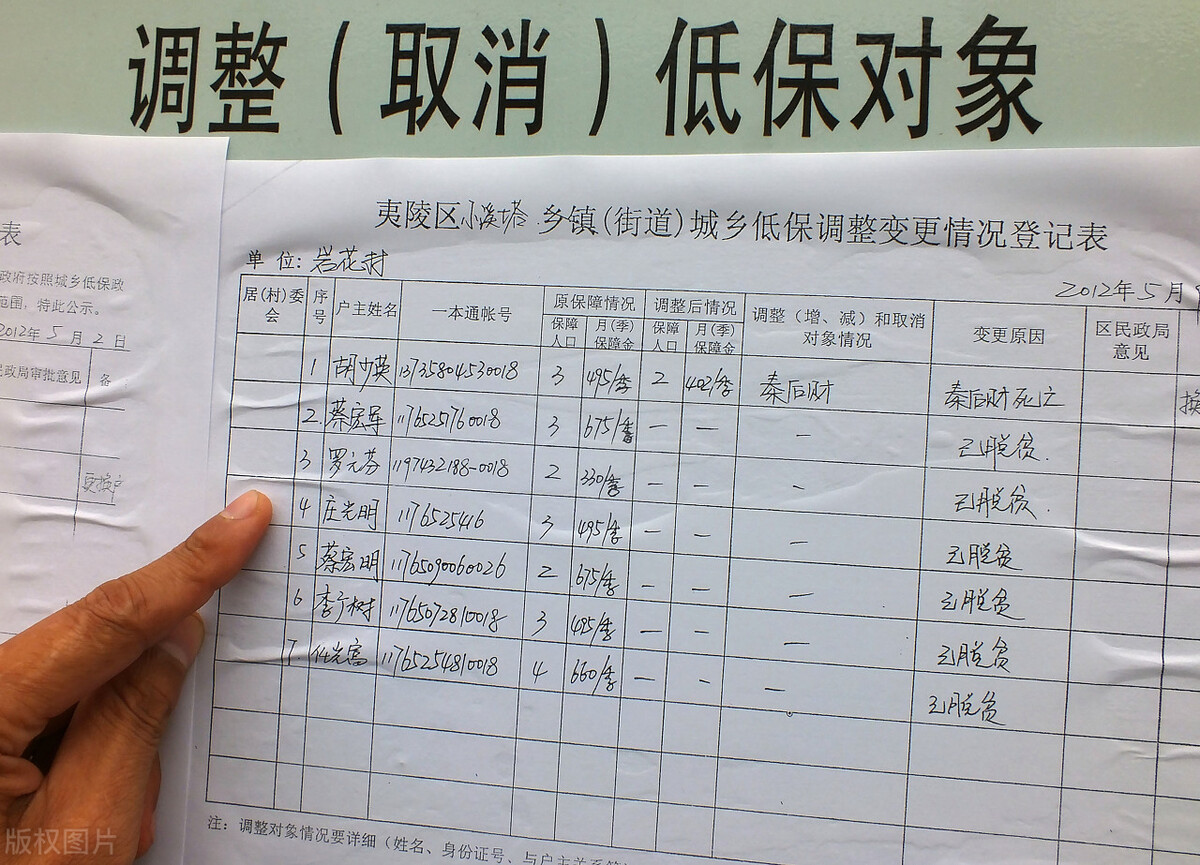 调整（取消）低保对象
表
政府按照城乡低保政
范围，特此公示。
2012年 5 月 2 日
民政局审批意见 备
夷陵区小溪塔乡镇(街道)城乡低保调整变更情况登记表
单 位：岩花村
2012年 5 月
居(村)委会 序号 户主姓名 一本通帐号 原保障情况 调整后情况 调整（增、减）和取消对象情况 变更原因 区民政局意见
保障人口 月(季)保障金 保障人口 月(季)保障金
1 胡少英 13735804530018 3 495/季 2 402/季 秦后财 秦后财死亡
2. 蔡宏军 11765251760018 3 675/季 — — — 已脱贫.
3 罗元芬 1197432188-0018 2 330/季 — — — 已脱贫.
4 庄光明 1176525416 3 495/季 — — — 已脱贫
5 蔡宏明 11765090060026 2 675/季 — — — 已脱贫
6 李广树 11765072810018 3 495/季 — — — 已脱贫
7. 任光富 11765254810018 4 660/季 — — — 已脱贫
注：调整对象情况要详细（姓名、身份证号、与户主关系等
版权图片